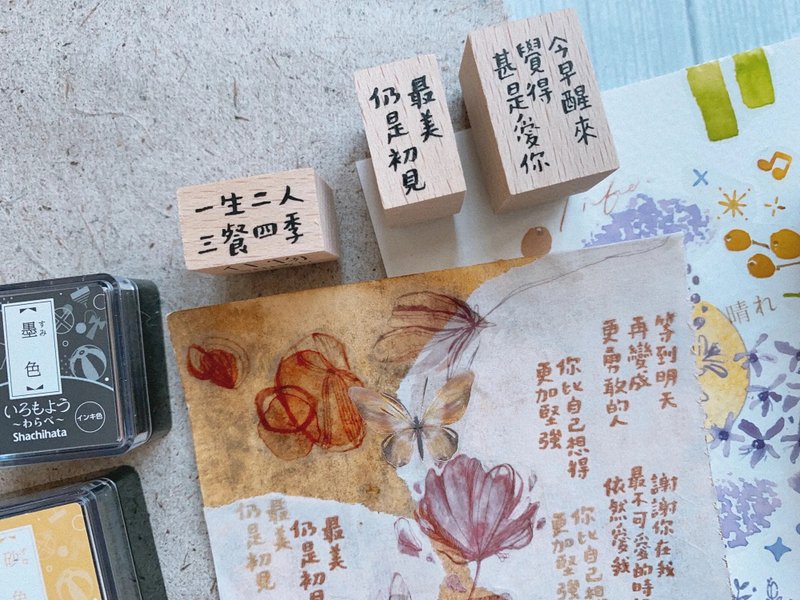 今早醒來
覺得
甚是愛你
最美
仍是初見
一生二人
三餐四季
墨
すみ
色
いろもよう
~わらべ~
Shachihata
インキ色
色
晴れ
等到明天
再變成
更勇敢的人
你比自己想得
更加堅強
謝謝你在我
最不可愛的時
依然愛我
你比自己想
更加堅強
最美
仍是初見
最美
仍是初見